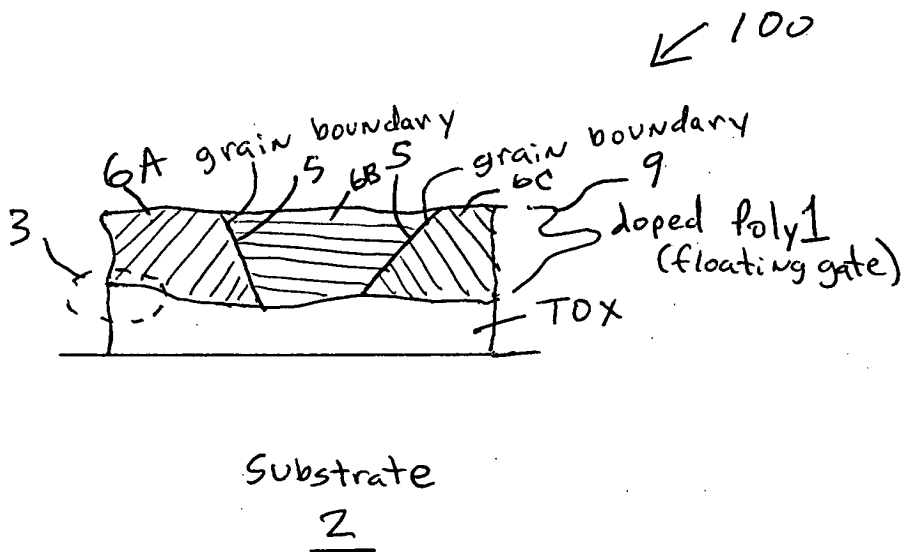 100
6A grain boundary
5 6B 5 grain boundary
6C 9
3
doped Poly1
(floating gate)
TOX
Substrate
2